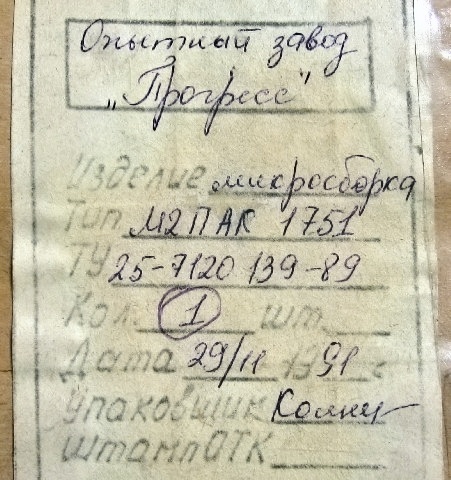 Опытный завод
„Прогресс"
Изделие микросборка
Тип М2ПАК 1751
ТУ 25-7120 139-89
Кол. 1 шт.
Дата 29/11 1991 г
Упаковщик
Штамп ОТК